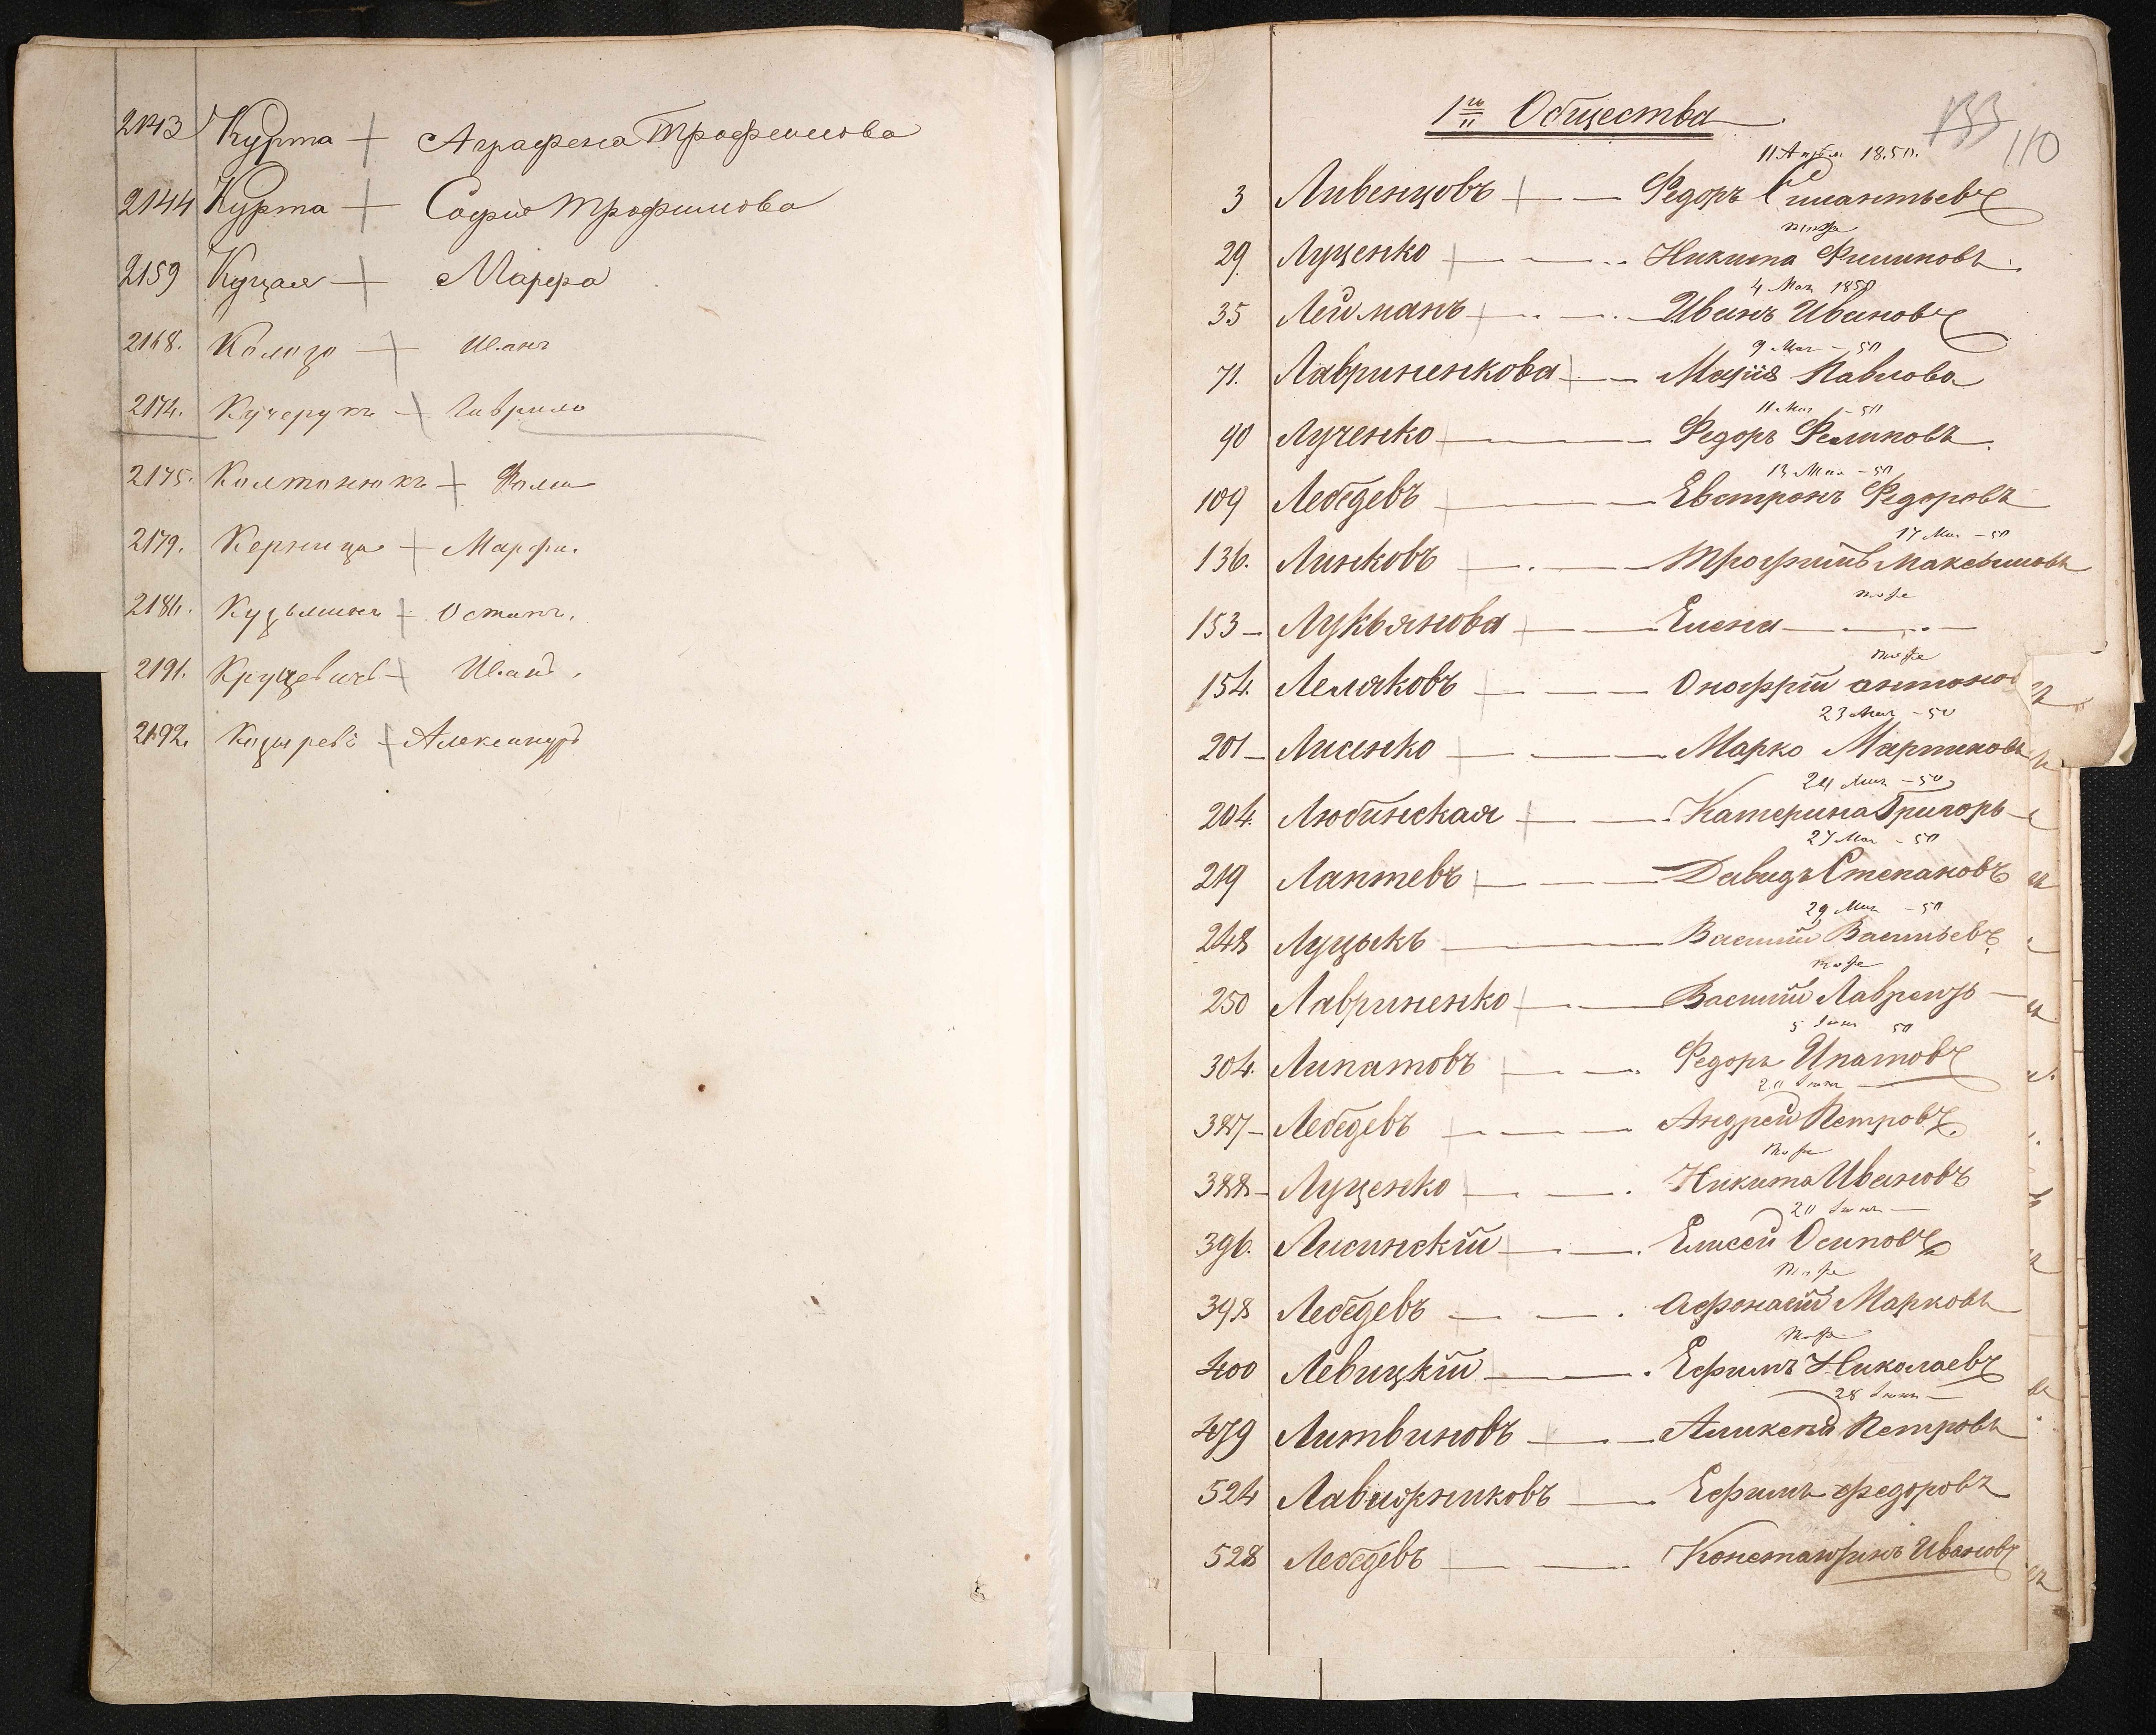 2143 Курта + Аграфена Трофимова
2144 Курта + Софія Трофимова
2159 Куцая + Марфа
2168. Колозо + Иванъ
2174. Кучерукъ + Гаврило
2175. Колтонюкъ + Фома
2179. Керница + Марфа.
2186. Кузьминъ + Остапъ.
2191. Круцевичъ + Иванъ.
2192. Козыревъ + Александръ
1й Общества
133
110
11 Апрѣля 1850.
3 Ливенцовъ + — Федоръ Силантьевъ
тоже
29. Луценко + — Никита Филиповъ
4 Мая 1850
35 Лейманъ + — Иванъ Ивановъ
9 Мая - 50
71. Лавриненкова + — Марія Павлова
11 Мая - 50
90 Лученко — Федоръ Филиповъ
13 Мая - 50
109 Лебедевъ + — Евстропъ Федоровъ
17 Мая - 50
136. Линковъ + — Трофимъ Максимовъ
тоже
153 — Лукьянова + — Елена —
тоже
154. Леляковъ + — Онофрій Антонов
23 Мая - 50
201 — Лисенко + — Марко Мартиновъ
24 Мая - 50
204. Любинская + — Катерина Григорь
27 Мая - 50
219 Лаптевъ + — Давидъ Степановъ
29 Мая - 50
248 Луцыкъ — Василій Васильевъ
тоже
250 Лавриненко + — Василій Лаврент
5 Іюня - 50
304. Липатовъ + — Федоръ Ипатовъ
20 Іюня —
387 — Лебедевъ + — Андрей Петровъ
тоже
388 — Луценко + — Никита Ивановъ
20 Іюня —
396. Лисинскій + — Елисей Осиповъ
тоже
398 Лебедевъ + — Афонасій Марковъ
тоже
400 Левицкій — Ефимъ Николаевъ
28 Іюня —
479 Литвиновъ + — Алексѣй Петровъ
524 Лавиорниковъ + — Ефимъ Федоровъ
528 Лебедевъ + — Константинъ Ивановъ